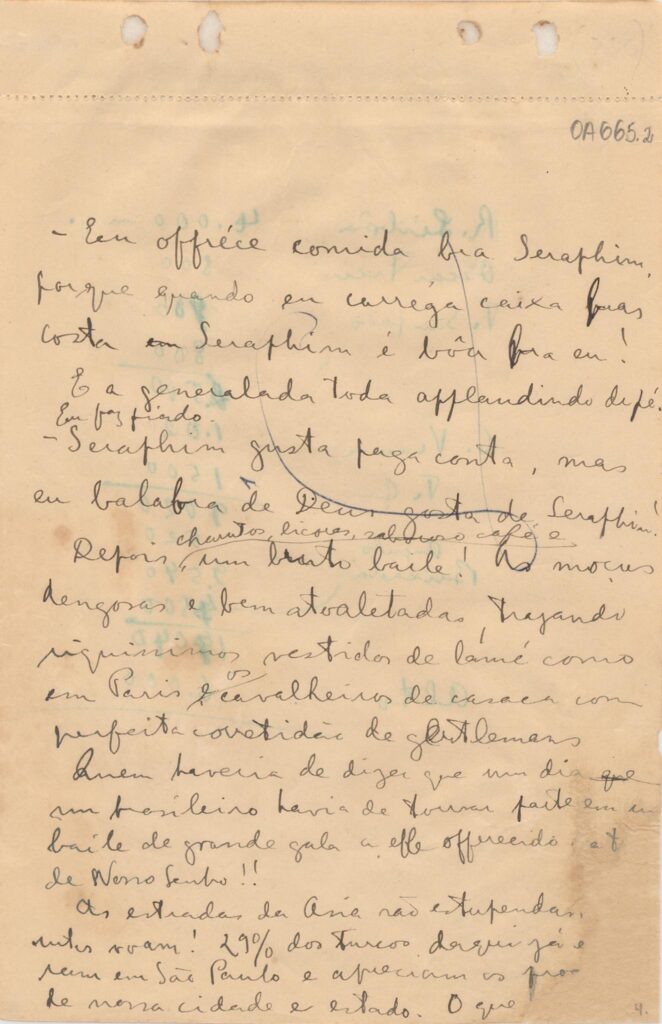 OA665.2
- Eu offréce comida bra Seraphim,
porque quando eu carréga caixa bras
costa Seraphim é bôa bra eu!
E a generalada toda applaudindo de pé.
Eu faz fiado.
- Seraphim gusta paga conta, mas
eu balabra de Deus gosta de Seraphim!
charutos, licores, saboroso café e
Depois, um bruto baile! As moças
dengosas e bem atoaletadas, trajando
riquissimos vestidos de lámé como
em Paris e os cavalheiros de casaca com
perfeita corretidão de gentlemans
Quem haveria de dizer que um dia que
um brasileiro havia de tomar parte em
baile de grande gala a elle offerecido
de Nosso Senho!!
As estradas da Asia são estupendas,
voam! 29% dos turcos daqui já
ram em São Paulo e apreciam os pro
de nossa cidade e estado. O que
4.